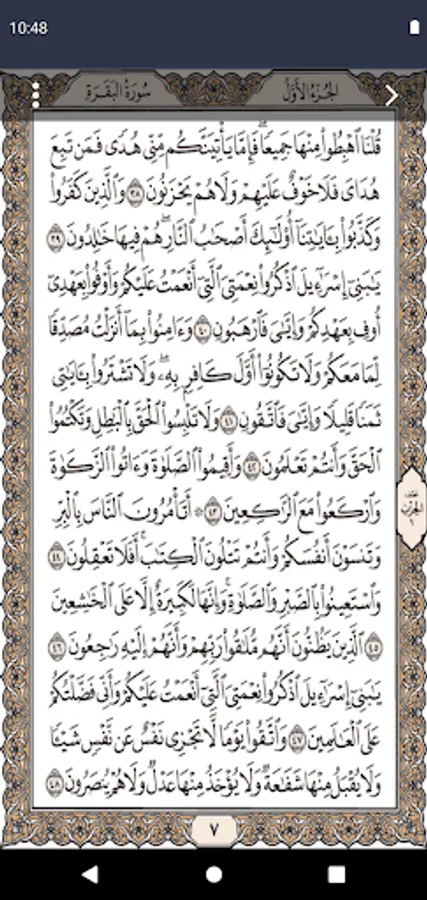 10:48
سُورَةُ البَقَرَة الجُزءُ الأَوَّلُ
قُلْنَا ٱهْبِطُوا۟ مِنْهَا جَمِيعًاۖ فَإِمَّا يَأْتِيَنَّكُم مِّنِّى هُدًى فَمَن تَبِعَ
هُدَاىَ فَلَا خَوْفٌ عَلَيْهِمْ وَلَا هُمْ يَحْزَنُونَ ٣٨ وَٱلَّذِينَ كَفَرُوا۟
وَكَذَّبُوا۟ بِـَٔايَـٰتِنَآ أُو۟لَـٰٓئِكَ أَصْحَـٰبُ ٱلنَّارِۖ هُمْ فِيهَا خَـٰلِدُونَ ٣٩
يَـٰبَنِىٓ إِسْرَٰٓءِيلَ ٱذْكُرُوا۟ نِعْمَتِىَ ٱلَّتِىٓ أَنْعَمْتُ عَلَيْكُمْ وَأَوْفُوا۟ بِعَهْدِىٓ
أُوفِ بِعَهْدِكُمْ وَإِيَّـٰىَ فَٱرْهَبُونِ ٤٠ وَءَامِنُوا۟ بِمَآ أَنزَلْتُ مُصَدِّقًا
لِّمَا مَعَكُمْ وَلَا تَكُونُوٓا۟ أَوَّلَ كَافِرٍۭ بِهِۦۖ وَلَا تَشْتَرُوا۟ بِـَٔايَـٰتِى
ثَمَنًا قَلِيلًا وَإِيَّـٰىَ فَٱتَّقُونِ ٤١ وَلَا تَلْبِسُوا۟ ٱلْحَقَّ بِٱلْبَـٰطِلِ وَتَكْتُمُوا۟
ٱلْحَقَّ وَأَنتُمْ تَعْلَمُونَ ٤٢ وَأَقِيمُوا۟ ٱلصَّلَوٰةَ وَءَاتُوا۟ ٱلزَّكَوٰةَ
وَٱرْكَعُوا۟ مَعَ ٱلرَّٰكِعِينَ ٤٣ ۞ أَتَأْمُرُونَ ٱلنَّاسَ بِٱلْبِرِّ
وَتَنسَوْنَ أَنفُسَكُمْ وَأَنتُمْ تَتْلُونَ ٱلْكِتَـٰبَۚ أَفَلَا تَعْقِلُونَ ٤٤
وَٱسْتَعِينُوا۟ بِٱلصَّبْرِ وَٱلصَّلَوٰةِۚ وَإِنَّهَا لَكَبِيرَةٌ إِلَّا عَلَى ٱلْخَـٰشِعِينَ
٤٥ ٱلَّذِينَ يَظُنُّونَ أَنَّهُم مُّلَـٰقُوا۟ رَبِّهِمْ وَأَنَّهُمْ إِلَيْهِ رَٰجِعُونَ ٤٦
يَـٰبَنِىٓ إِسْرَٰٓءِيلَ ٱذْكُرُوا۟ نِعْمَتِىَ ٱلَّتِىٓ أَنْعَمْتُ عَلَيْكُمْ وَأَنِّى فَضَّلْتُكُمْ
عَلَى ٱلْعَـٰلَمِينَ ٤٧ وَٱتَّقُوا۟ يَوْمًا لَّا تَجْزِى نَفْسٌ عَن نَّفْسٍ شَيْـًٔا
وَلَا يُقْبَلُ مِنْهَا شَفَـٰعَةٌ وَلَا يُؤْخَذُ مِنْهَا عَدْلٌ وَلَا هُمْ يُنصَرُونَ ٤٨
٧